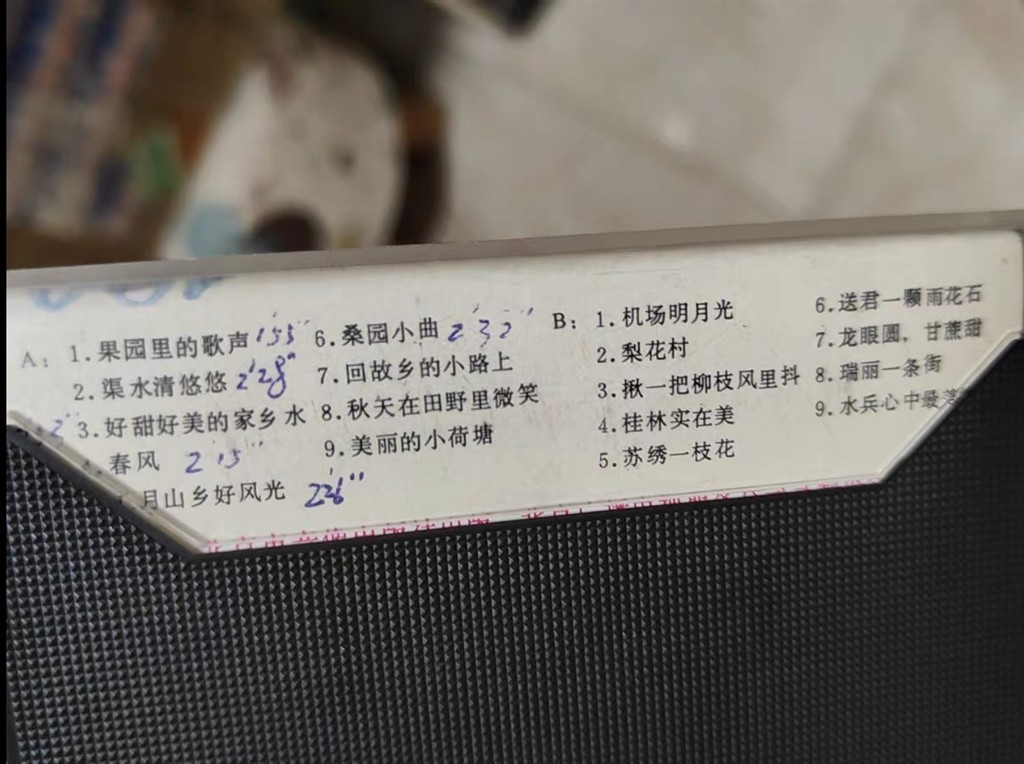 A：
1.果园里的歌声 1'55"
2.渠水清悠悠 2'28"
2' 3.好甜好美的家乡水
春风 2'15"
月山乡好风光 2'26"
6.桑园小曲 2'32"
7.回故乡的小路上
8.秋天在田野里微笑
9.美丽的小荷塘
B：
1.机场明月光
2.梨花村
3.揪一把柳枝风里抖
4.桂林实在美
5.苏绣一枝花
6.送君一颗雨花石
7.龙眼圆，甘蔗甜
8.瑞丽一条街
9.水兵心中最